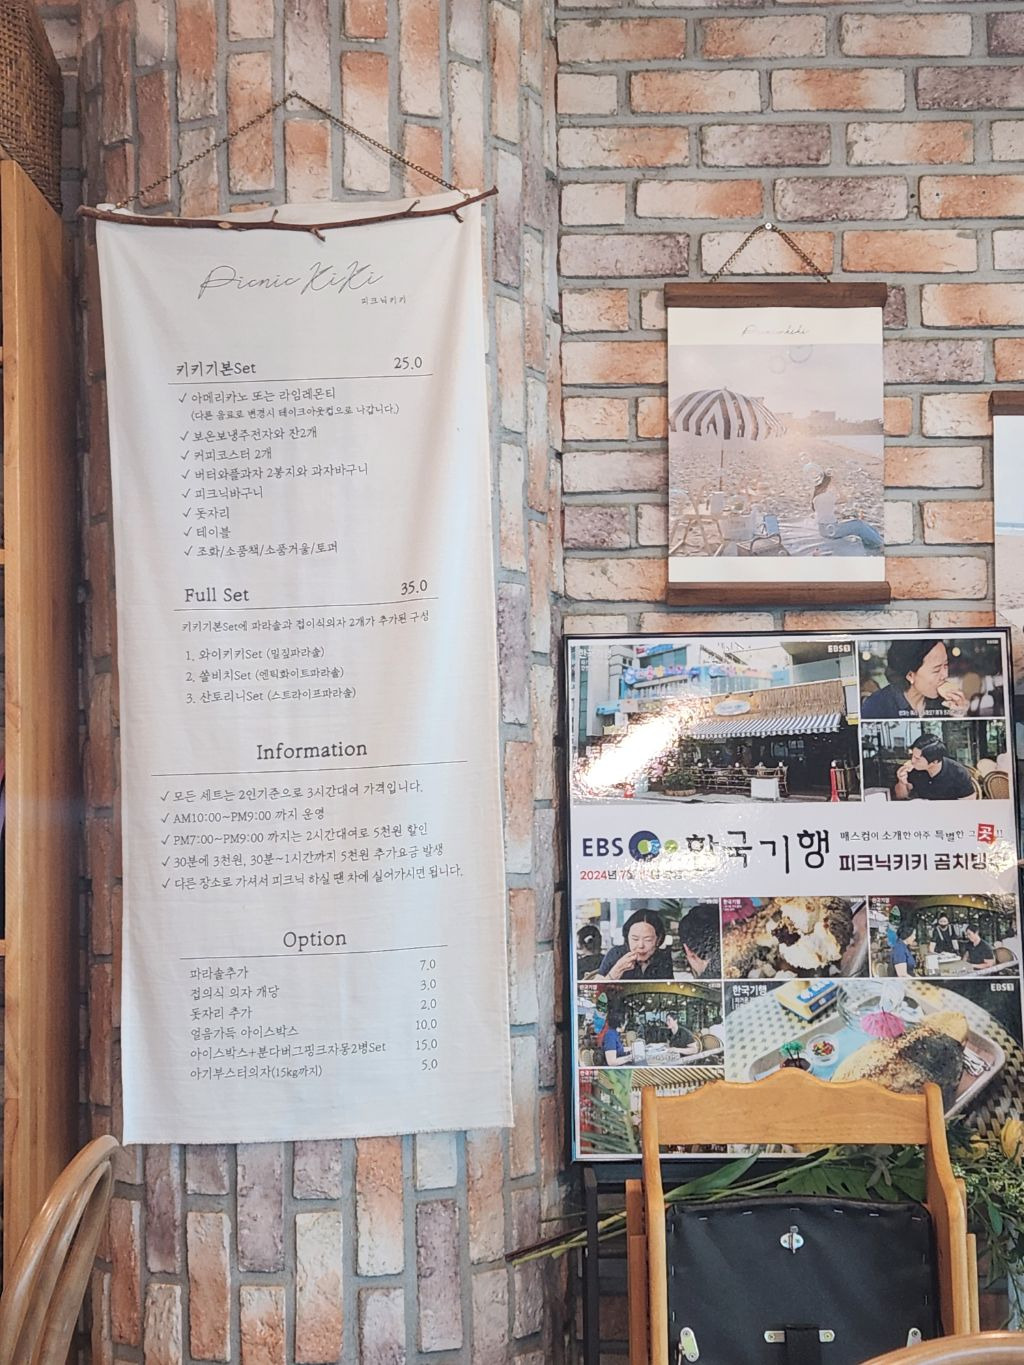 Picnic KiKi
피크닉키키
키키기본Set 25.0
✓ 아메리카노 또는 라임레몬티
(다른 음료로 변경시 테이크아웃컵으로 나갑니다.)
✓ 보온보냉주전자와 잔2개
✓ 커피코스터 2개
✓ 버터와플과자 2봉지와 과자바구니
✓ 피크닉바구니
✓ 돗자리
✓ 테이블
✓ 조화/소품책/소품거울/토퍼
Full Set 35.0
키키기본Set에 파라솔과 접이식의자 2개가 추가된 구성
1. 와이키키Set (밀짚파라솔)
2. 쏠비치Set (엔틱화이트파라솔)
3. 산토리니Set (스트라이프파라솔)
Information
✓ 모든 세트는 2인기준으로 3시간대여 가격입니다.
✓ AM10:00~PM9:00 까지 운영
✓ PM7:00~PM9:00 까지는 2시간대여로 5천원 할인
✓ 30분에 3천원, 30분~1시간까지 5천원 추가요금 발생
✓ 다른 장소로 가셔서 피크닉 하실 땐 차에 실어가시면 됩니다.
Option
파라솔추가 7.0
접의식 의자 개당 3.0
돗자리 추가 2.0
얼음가득 아이스박스 10.0
아이스박스+분다버그핑크자몽2병Set 15.0
아기부스터의자(15kg까지) 5.0
Picnic kiki
EBS1
EBS 한국기행 매스컴이 소개한 아주 특별한 그 곳!!
2024년 7월
피크닉키키 곰치빵
한국기행
EBS1